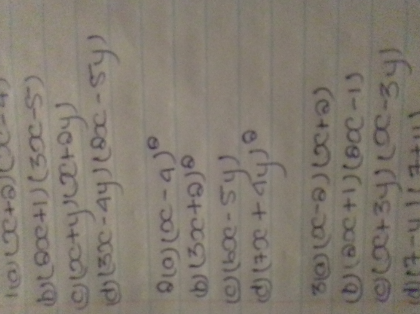 1(a)(x+2)(x-4)
b)(2x+1)(3x-5)
c)(x+y)(x+2y)
d)(3x-4y)(2x-5y)
2(a)(x-4)²
b)(3x+2)²
c)(6x-5y)
d)(7x+4y)²
3(a)(x-2)(x+2)
b)(2x+1)(2x-1)
c)(x+3y)(x-3y)